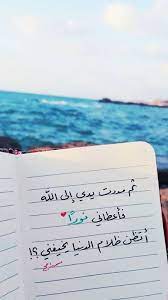 ثم مددت يدي إلى الله
فأعطاني نوراً
أتظن ظلام الدنيا يخيفني ؟!